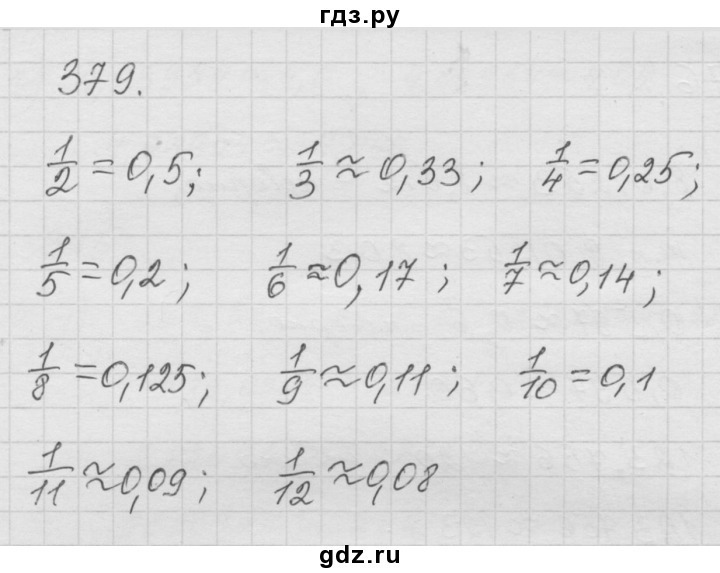 гдз.ру
379.
1/2 = 0,5; 1/3 ≈ 0,33; 1/4 = 0,25;
1/5 = 0,2; 1/6 ≈ 0,17; 1/7 ≈ 0,14;
1/8 = 0,125; 1/9 ≈ 0,11; 1/10 = 0,1
1/11 ≈ 0,09; 1/12 ≈ 0,08
gdz.ru